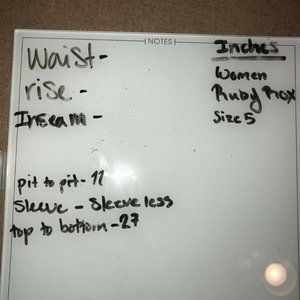 NOTES
Waist -
rise -
Inseam -
pit to pit - 11
Sleeve - Sleeveless
top to bottom - 27
Inches
Women
Ruby Rox
Size 5